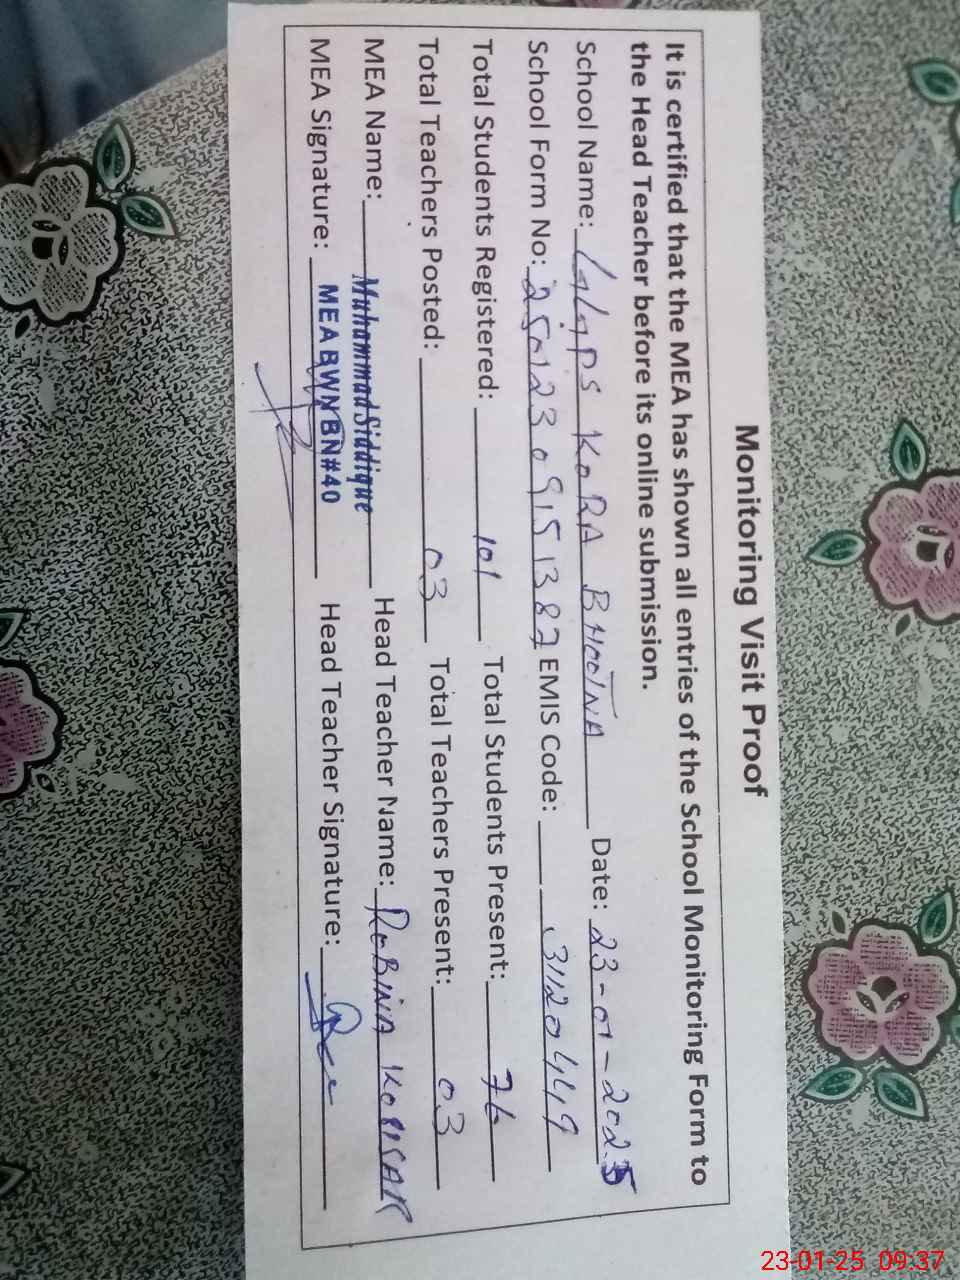 Monitoring Visit Proof
It is certified that the MEA has shown all entries of the School Monitoring Form to
the Head Teacher before its online submission.
School Name: KORA BHOOTNA Date: 23-01-2025
School Form No: EMIS Code: 31120449
Total Students Registered: 101 Total Students Present: 76
Total Teachers Posted: 03 Total Teachers Present: 03
MEA Name: Muhammad Siddique Head Teacher Name: RUBINA KOUSAR
MEA Signature: MEA BWN BN#40 Head Teacher Signature:
23-01-25 09:37